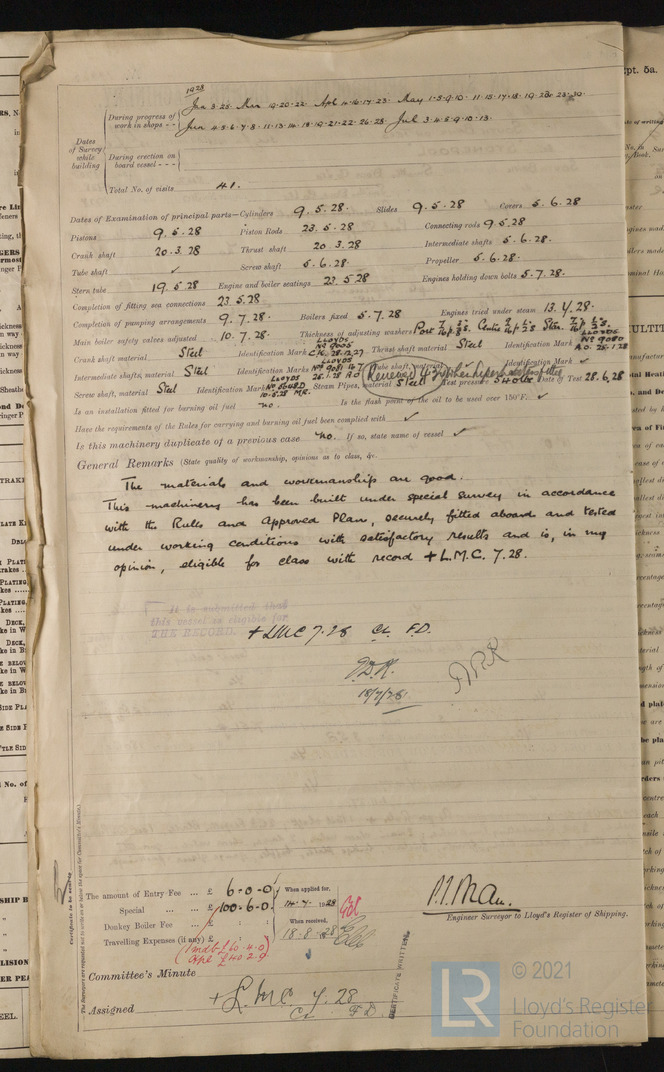 1928
Dates of Survey while building
During progress of work in shops - - Jan 3.25. Mar 19.20.22. Apl 4.16.17.23. May 1.3.9.10. 11.15.17.18. 19.23.30.
Jun 4.5.6.7.8.11.13.14.18.19.21.22.26.28. Jul 3.4.5.9.10.13.
During erection on board vessel - - -
Total No. of visits 41.
Dates of Examination of principal parts—Cylinders 9.5.28. Slides 9.5.28 Covers 5.6.28.
Pistons 9.5.28 Piston Rods 23.5.28 Connecting rods 9.5.28
Crank shaft 20.3.28 Thrust shaft 20.3.28 Intermediate shafts 5.6.28.
Tube shaft ✓ Screw shaft 5.6.28 Propeller 5.6.28.
Stern tube 19.5.28 Engine and boiler seatings 23.5.28 Engines holding down bolts 5.7.28.
Completion of fitting sea connections 23.5.28
Completion of pumping arrangements 9.7.28. Boilers fixed 5.7.28 Engines tried under steam 13.7.28.
Main boiler safety valves adjusted 10.7.28. Thickness of adjusting washers Port Centre Stbn
Crank shaft material Steel Identification Mark LLOYDS No 9005 C.K. 28.12.27 Thrust shaft material Steel Identification Mark LLOYDS No 9080 A.O. 25.1.28
Intermediate shafts, material Steel Identification Marks LLOYDS Nos 9081 25.1.28 A O Tube shaft, material ✓ Identification Mark ✓
Screw shaft, material Steel Identification Mark LLOYDS 10.5.28 Steam Pipes, material Steel Test pressure 540 lbs Date of Test 28.6.28
Is an installation fitted for burning oil fuel no. Is the flash point of the oil to be used over 150°F. ✓
Have the requirements of the Rules for carrying and burning oil fuel been complied with ✓
Is this machinery duplicate of a previous case no. If so, state name of vessel ✓
General Remarks (State quality of workmanship, opinions as to class, &c.
The materials and workmanship are good.
This machinery has been built under special survey in accordance
with the Rules and Approved Plan, securely fitted aboard and tested
under working conditions with satisfactory results and is, in my
opinion, eligible for class with record + L.M.C. 7.28.
It is submitted that
this vessel is eligible for
THE RECORD. + LMC 7.28 CL. F.D.
18/7/28
The amount of Entry Fee ... £ 6-0-0 When applied for,
Special ... ... £ 100-6-0. 14.7.1928
Donkey Boiler Fee ... £ When received,
Travelling Expenses (if any) £ 18.8.28
Engineer Surveyor to Lloyd's Register of Shipping.
Committee's Minute
Assigned + L.M.C 7.28
CL F D.
CERTIFICATE WRITTEN
© 2021
LR
Lloyd's Register
Foundation